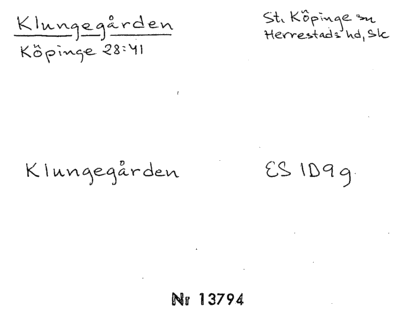 Klungegården
Köpinge 28:41
St. Köpinge sn
Herrestads hd, Sk
Klungegården
ES 1D9g
Nr 13794